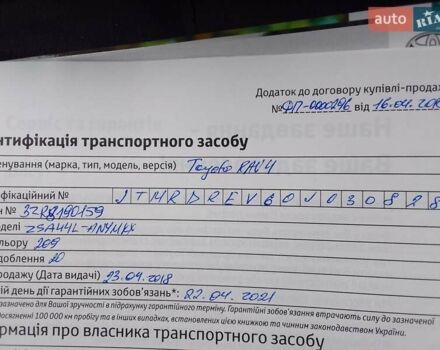 auto RIA
Додаток до договору купівлі-продаж
№ФП-0000296 від 16.04.20
нтифікація транспортного засобу
енування (марка, тип, модель, версія) Toyota RAV4
фікаційний № JTMRDREVB0J03082
н № 3ZRB190159
делі ZSA44L-ANYMKX
льору 209
облення 20
родажу (Дата видачі) 23.04.2018
ій день дії гарантійних зобов'язань*: 22.04.2021
азначено для Вашої зручності в підрахунку гарантійного терміну. Гарантійні зобов'язання втрачають силу до зазначеної
досягненні 100 000 км пробігу та в інших випадках, встановлених цією книжкою та чинним законодавством України.
рмація про власника транспортного засобу